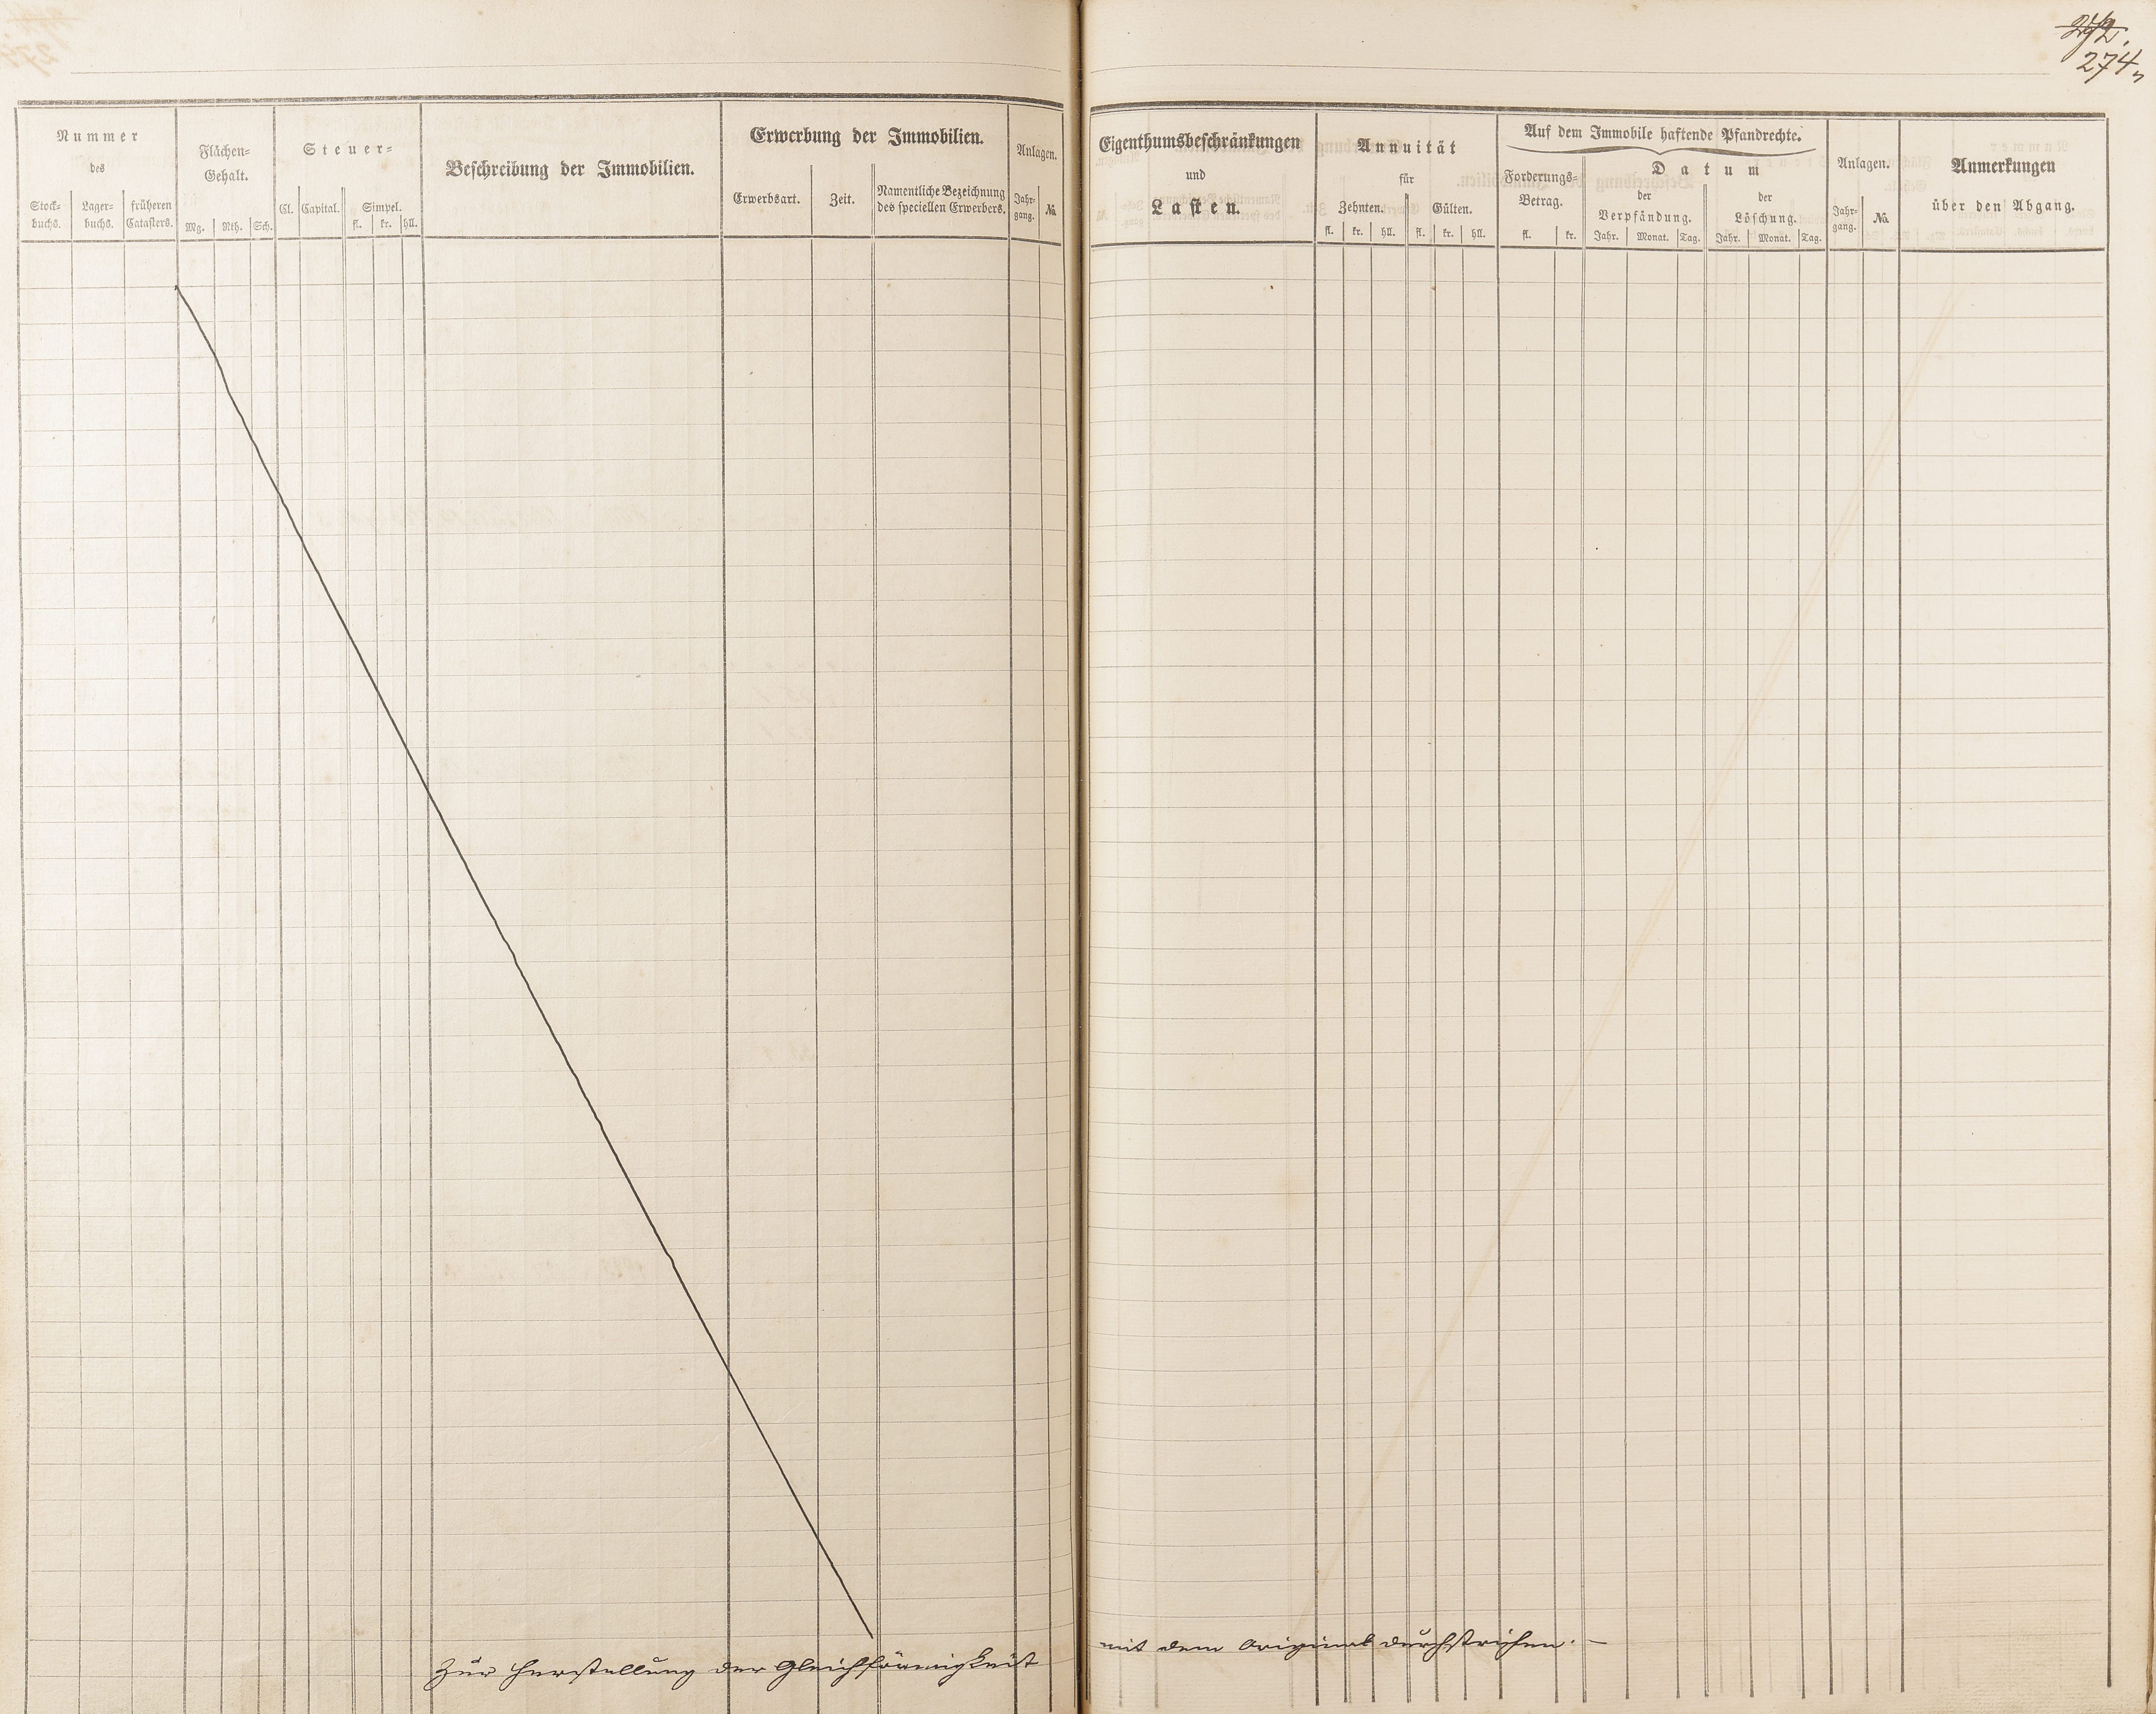 274
Nummer
des
Stock-
buchs.
Lager-
buchs.
früheren
Catasters.
Flächen-
Gehalt.
Mg.
Rth.
Sch.
Steuer-
Cl.
Capital.
Simpel.
fl.
kr.
hll.
Beschreibung der Immobilien.
Erwerbung der Immobilien.
Erwerbsart.
Zeit.
Namentliche Bezeichnung
des speciellen Erwerbers.
Anlagen.
Jahr-
gang.
No.
Eigenthumsbeschränkungen
und
Lasten.
Annuität
für
Zehnten.
fl.
kr.
hll.
Gülten.
fl.
kr.
hll.
Auf dem Immobile haftende Pfandrechte.
Forderungs-
Betrag.
fl.
kr.
Datum
der
Verpfändung.
Jahr.
Monat.
Tag.
der
Löschung.
Jahr.
Monat.
Tag.
Anlagen.
Jahr-
gang.
No.
Anmerkungen
über den Abgang.
Zur Herstellung der Gleichförmigkeit mit dem Original durchstrichen. —